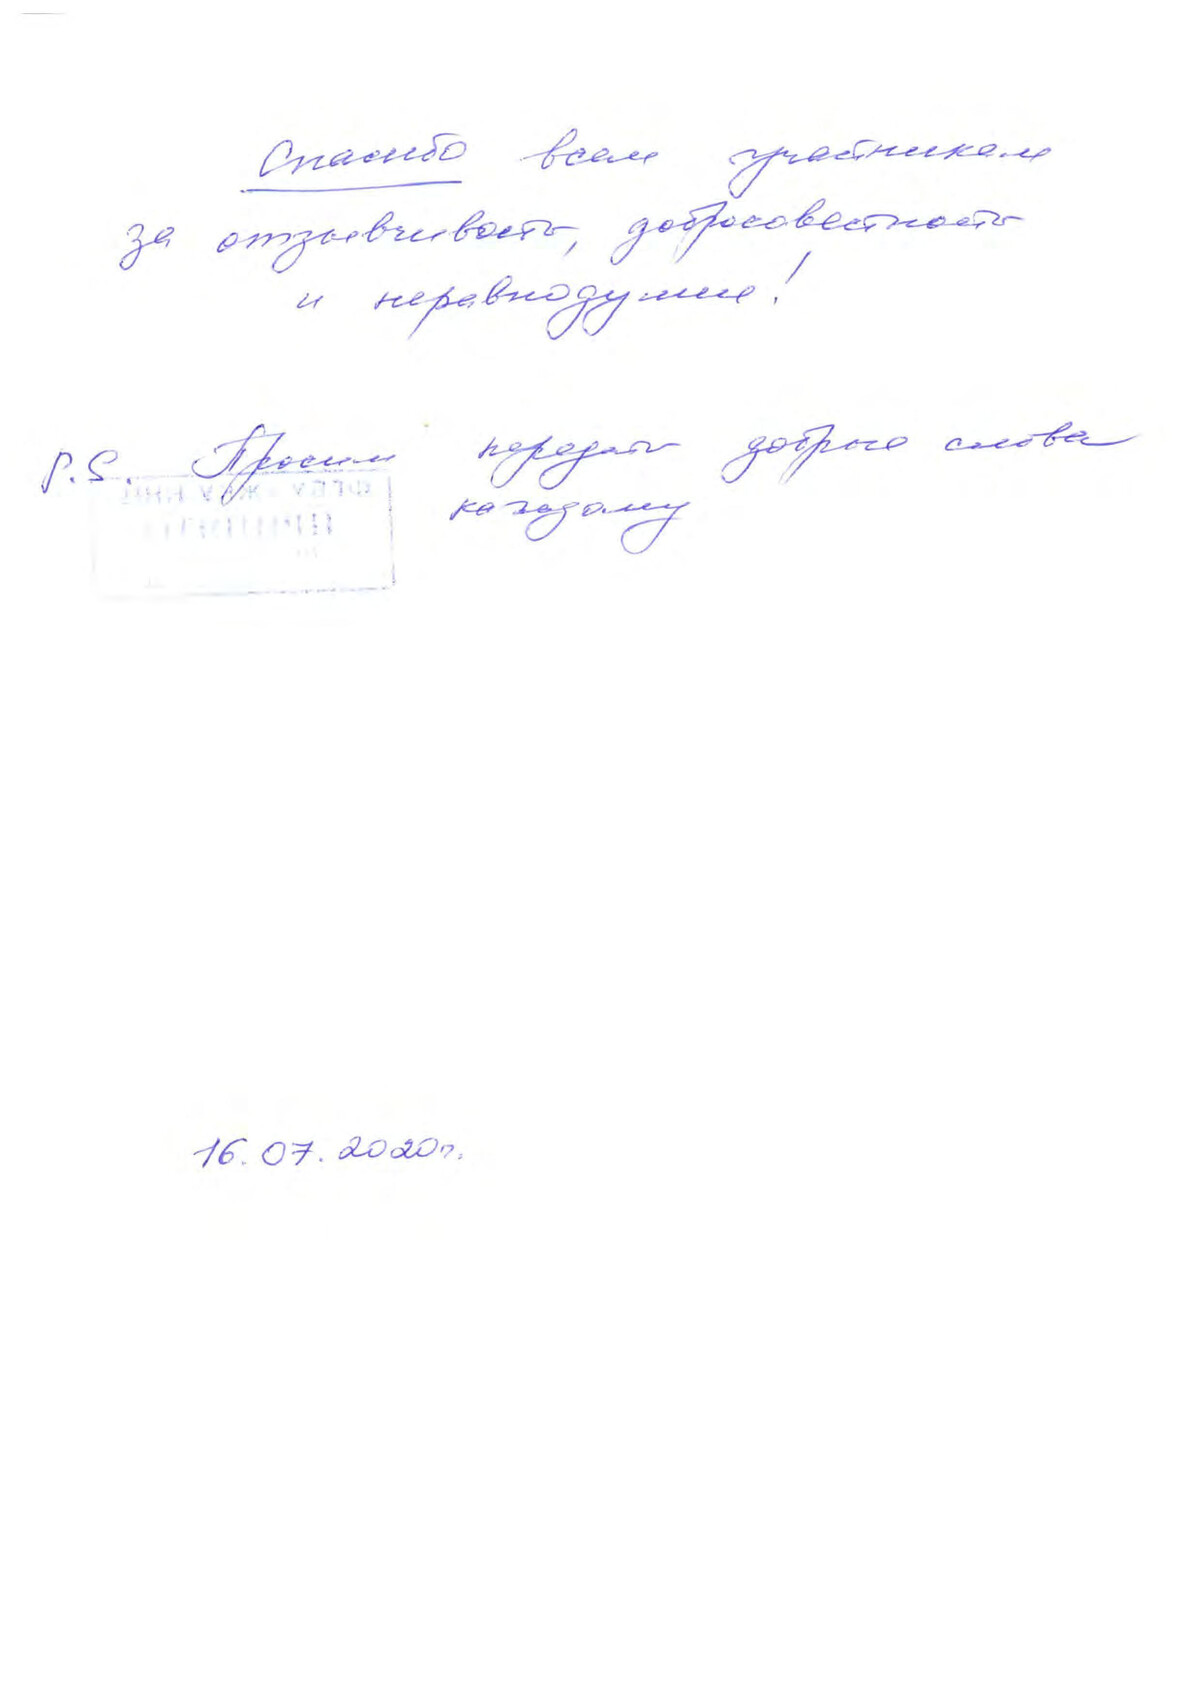 Спасибо всем участникам
за отзывчивость, добросовестность
и неравнодушие!
P.S. Просим передать добрые слова
каждому
ФГБУ «ЖКУ КНЦ
16.07.2020г.